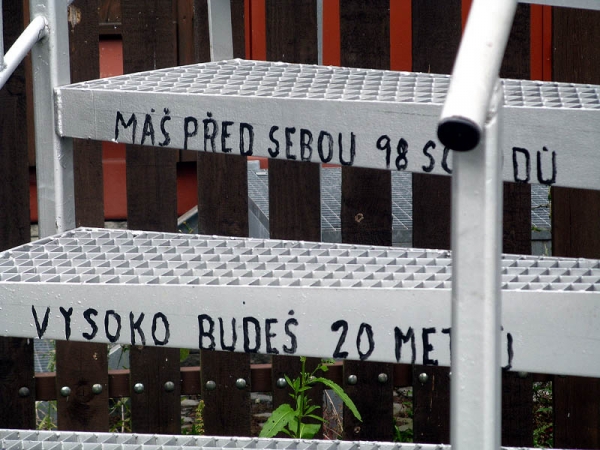 MÁŠ PŘED SEBOU 98 SCHODŮ
VYSOKO BUDEŠ 20 METRŮ